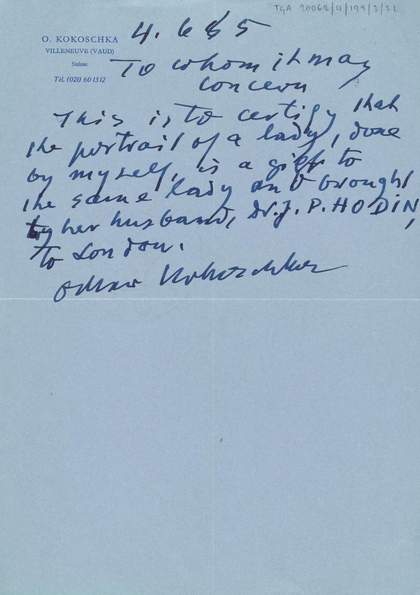 TGA 20062/4/199/3/31
O. KOKOSCHKA
VILLENEUVE (VAUD)
Suisse
Tél. (021) 60 13 12
4. 6 65
To whom it may
concern
This is to certify that
the portrait of a lady, done
by myself, is a gift to
the same lady and brought
by her husband, Dr. J. P. HODIN,
to London.
Oskar Kokoschka